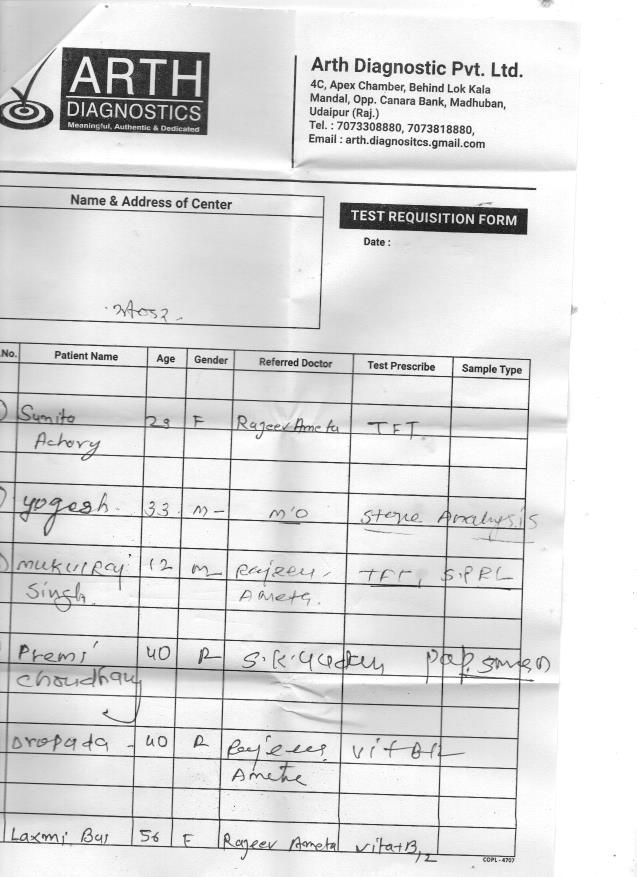 ARTH
DIAGNOSTICS
Meaningful, Authentic & Dedicated
Arth Diagnostic Pvt. Ltd.
4C, Apex Chamber, Behind Lok Kala
Mandal, Opp. Canara Bank, Madhuban,
Udaipur (Raj.)
Tel. : 7073308880, 7073818880,
Email : arth.diagnositcs.gmail.com
Name & Address of Center
TEST REQUISITION FORM
Date :
.No. Patient Name Age Gender Referred Doctor Test Prescribe Sample Type
Sunita F Rajeev Ameta TFT
Achory
Yogesh 33 M M'O Stone Analysis
Mukulraj 12 M Rajeev TFT, S.PRL
Singh Ameta
Premi 40 S.K. Pap smear
Choudhary
Dropada 40 Rajeev vit B12
Ameta
Laxmi Bai 56 F Rajeev Ameta vita+B12
COPL - 4707